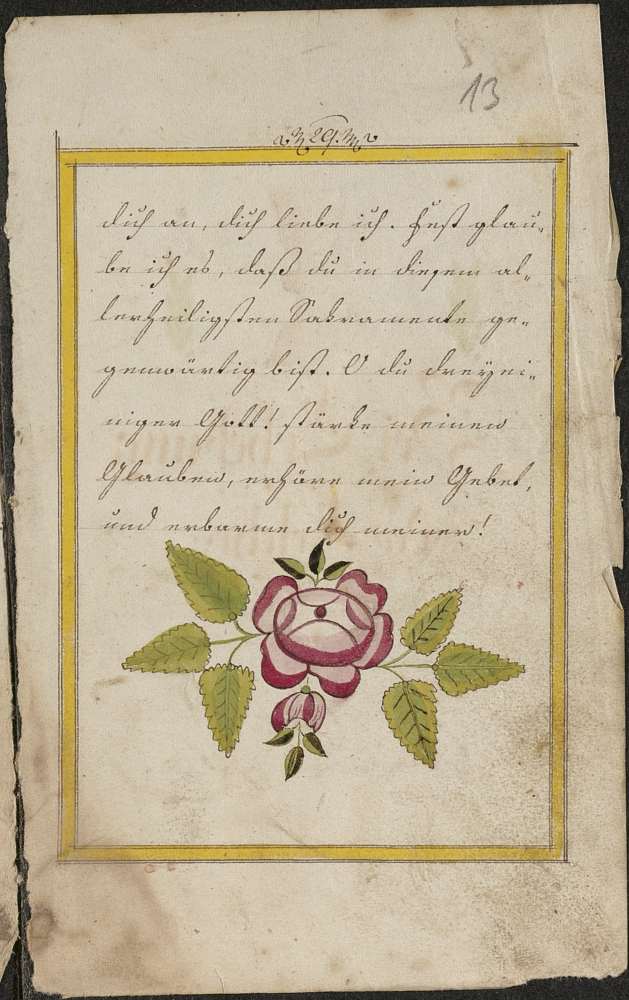 13
29.
dich an, dich liebe ich. Fest glau-
be ich es, daß du in diesem al-
lerheiligsten Sakramente ge-
genwärtig bist. O du dreyei-
niger Gott! stärke meinen
Glauben, erhöre mein Gebet,
und erbarme dich meiner!